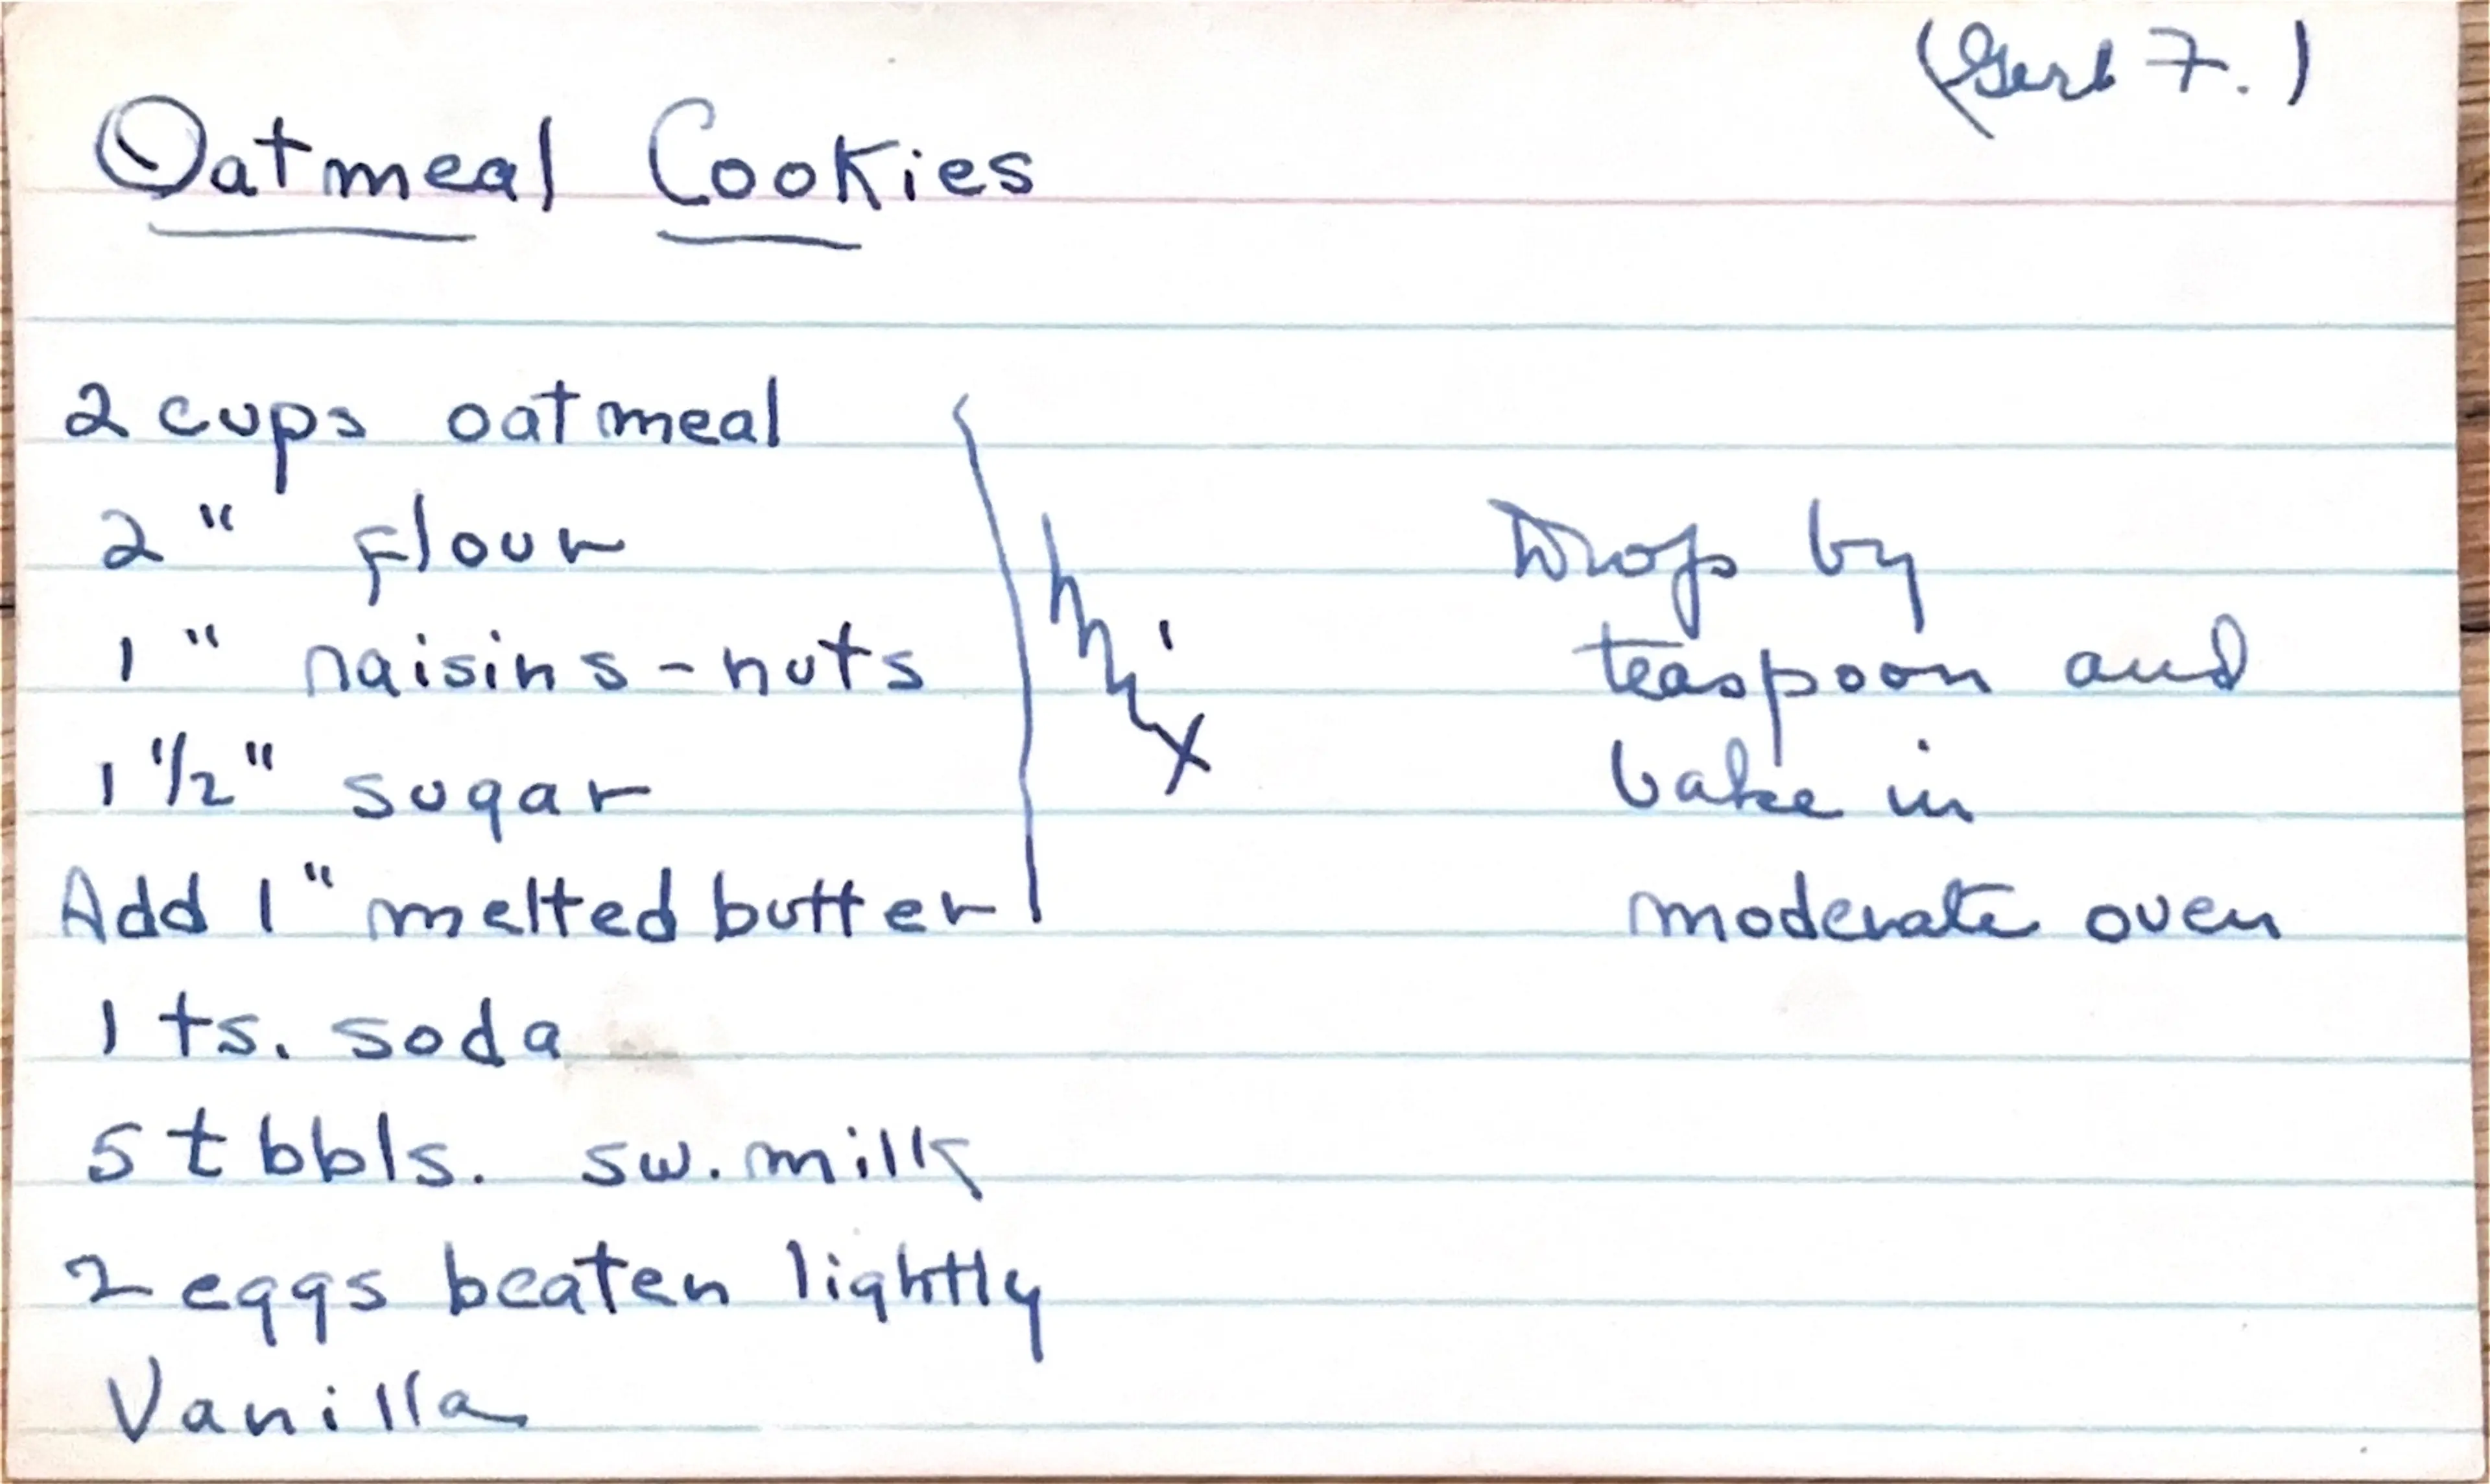 Oatmeal Cookies
2 cups oatmeal
2 " flour
1 " raisins - nuts
1 1/2 " sugar
Add 1 " melted butter
Mix
1 ts. soda
5 tbbls. sw. milk
2 eggs beaten lightly
Vanilla
Drop by
teaspoon and
bake in
moderate oven